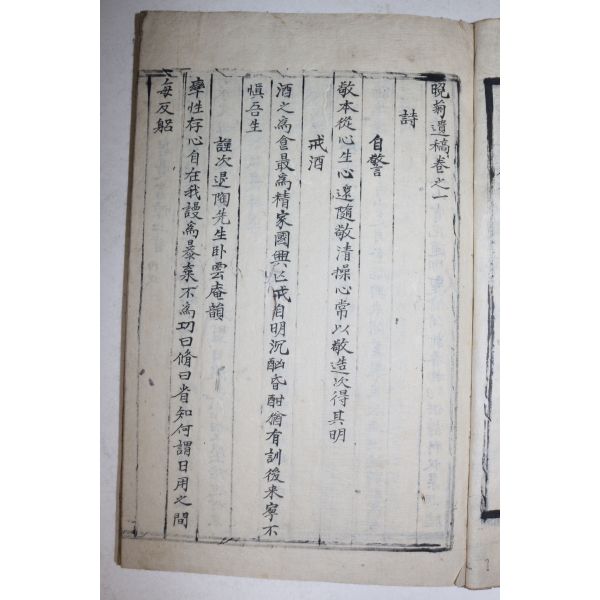 晩菊遺稿卷之一
詩
自警
敬本從心生心還隨敬清操心常以敬造次得其明
戒酒
酒之爲會最爲精家國興亡戒自明沉酗昏酣猶有訓後来寧不
愼吾生
謹次退陶先生卧雲庵韻
率性存心自在我謾爲暴棄不爲功曰脩曰省知何謂日用之間
每反躬